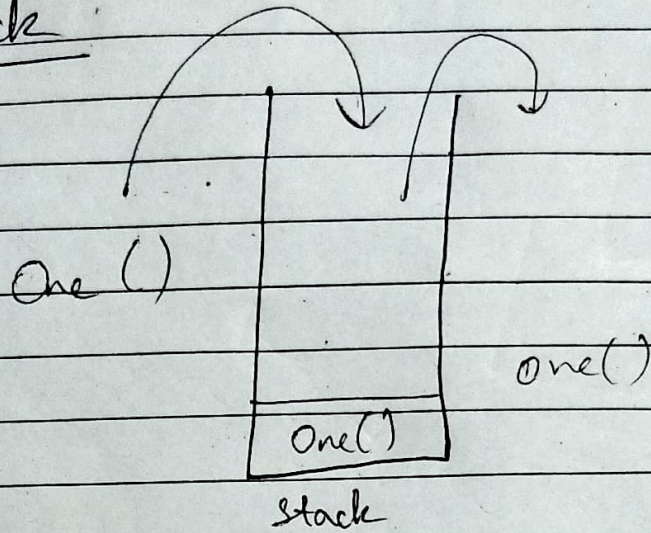 One ()
one()
One()
stack